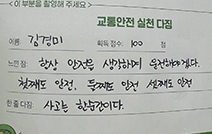 이 부분을 촬영해 주세요
교통안전 실천 다짐
이름: 김경미 획득 점수: 100 점
느낀 점: 항상 안전을 생각하며 운전해야겠다.
첫째도 안전, 둘째도 안전 셋째도 안전
한 줄 다짐: 사고는 한순간이다.